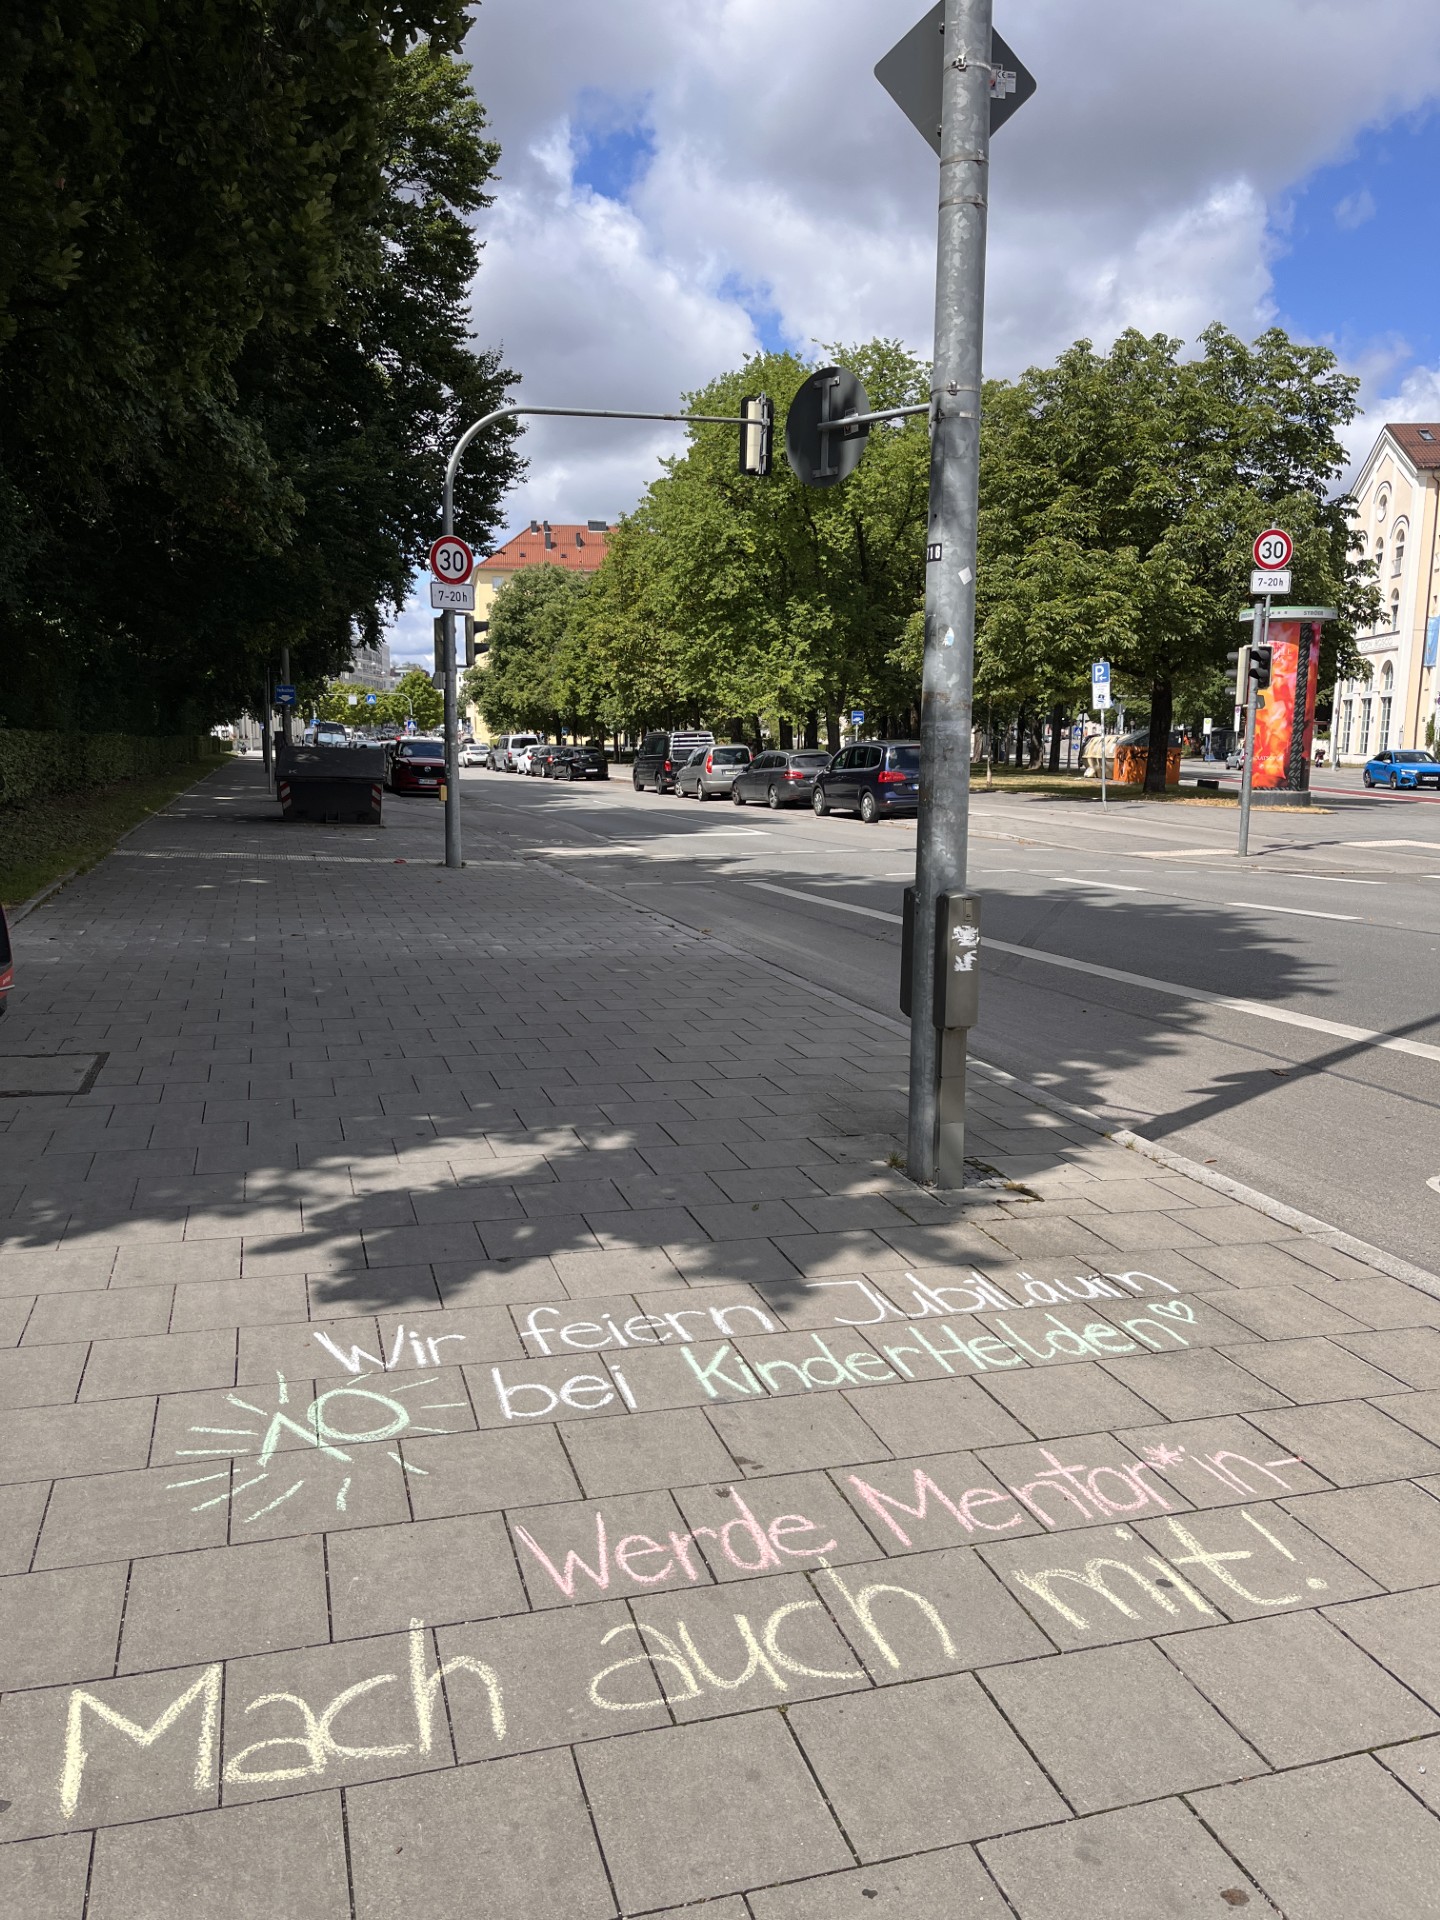 30
7-20h
30
7-20h
STRÖER
P
CE
Wir feiern Jubiläum
bei KinderHelden
10
Werde Mentor*in-
Mach auch mit!